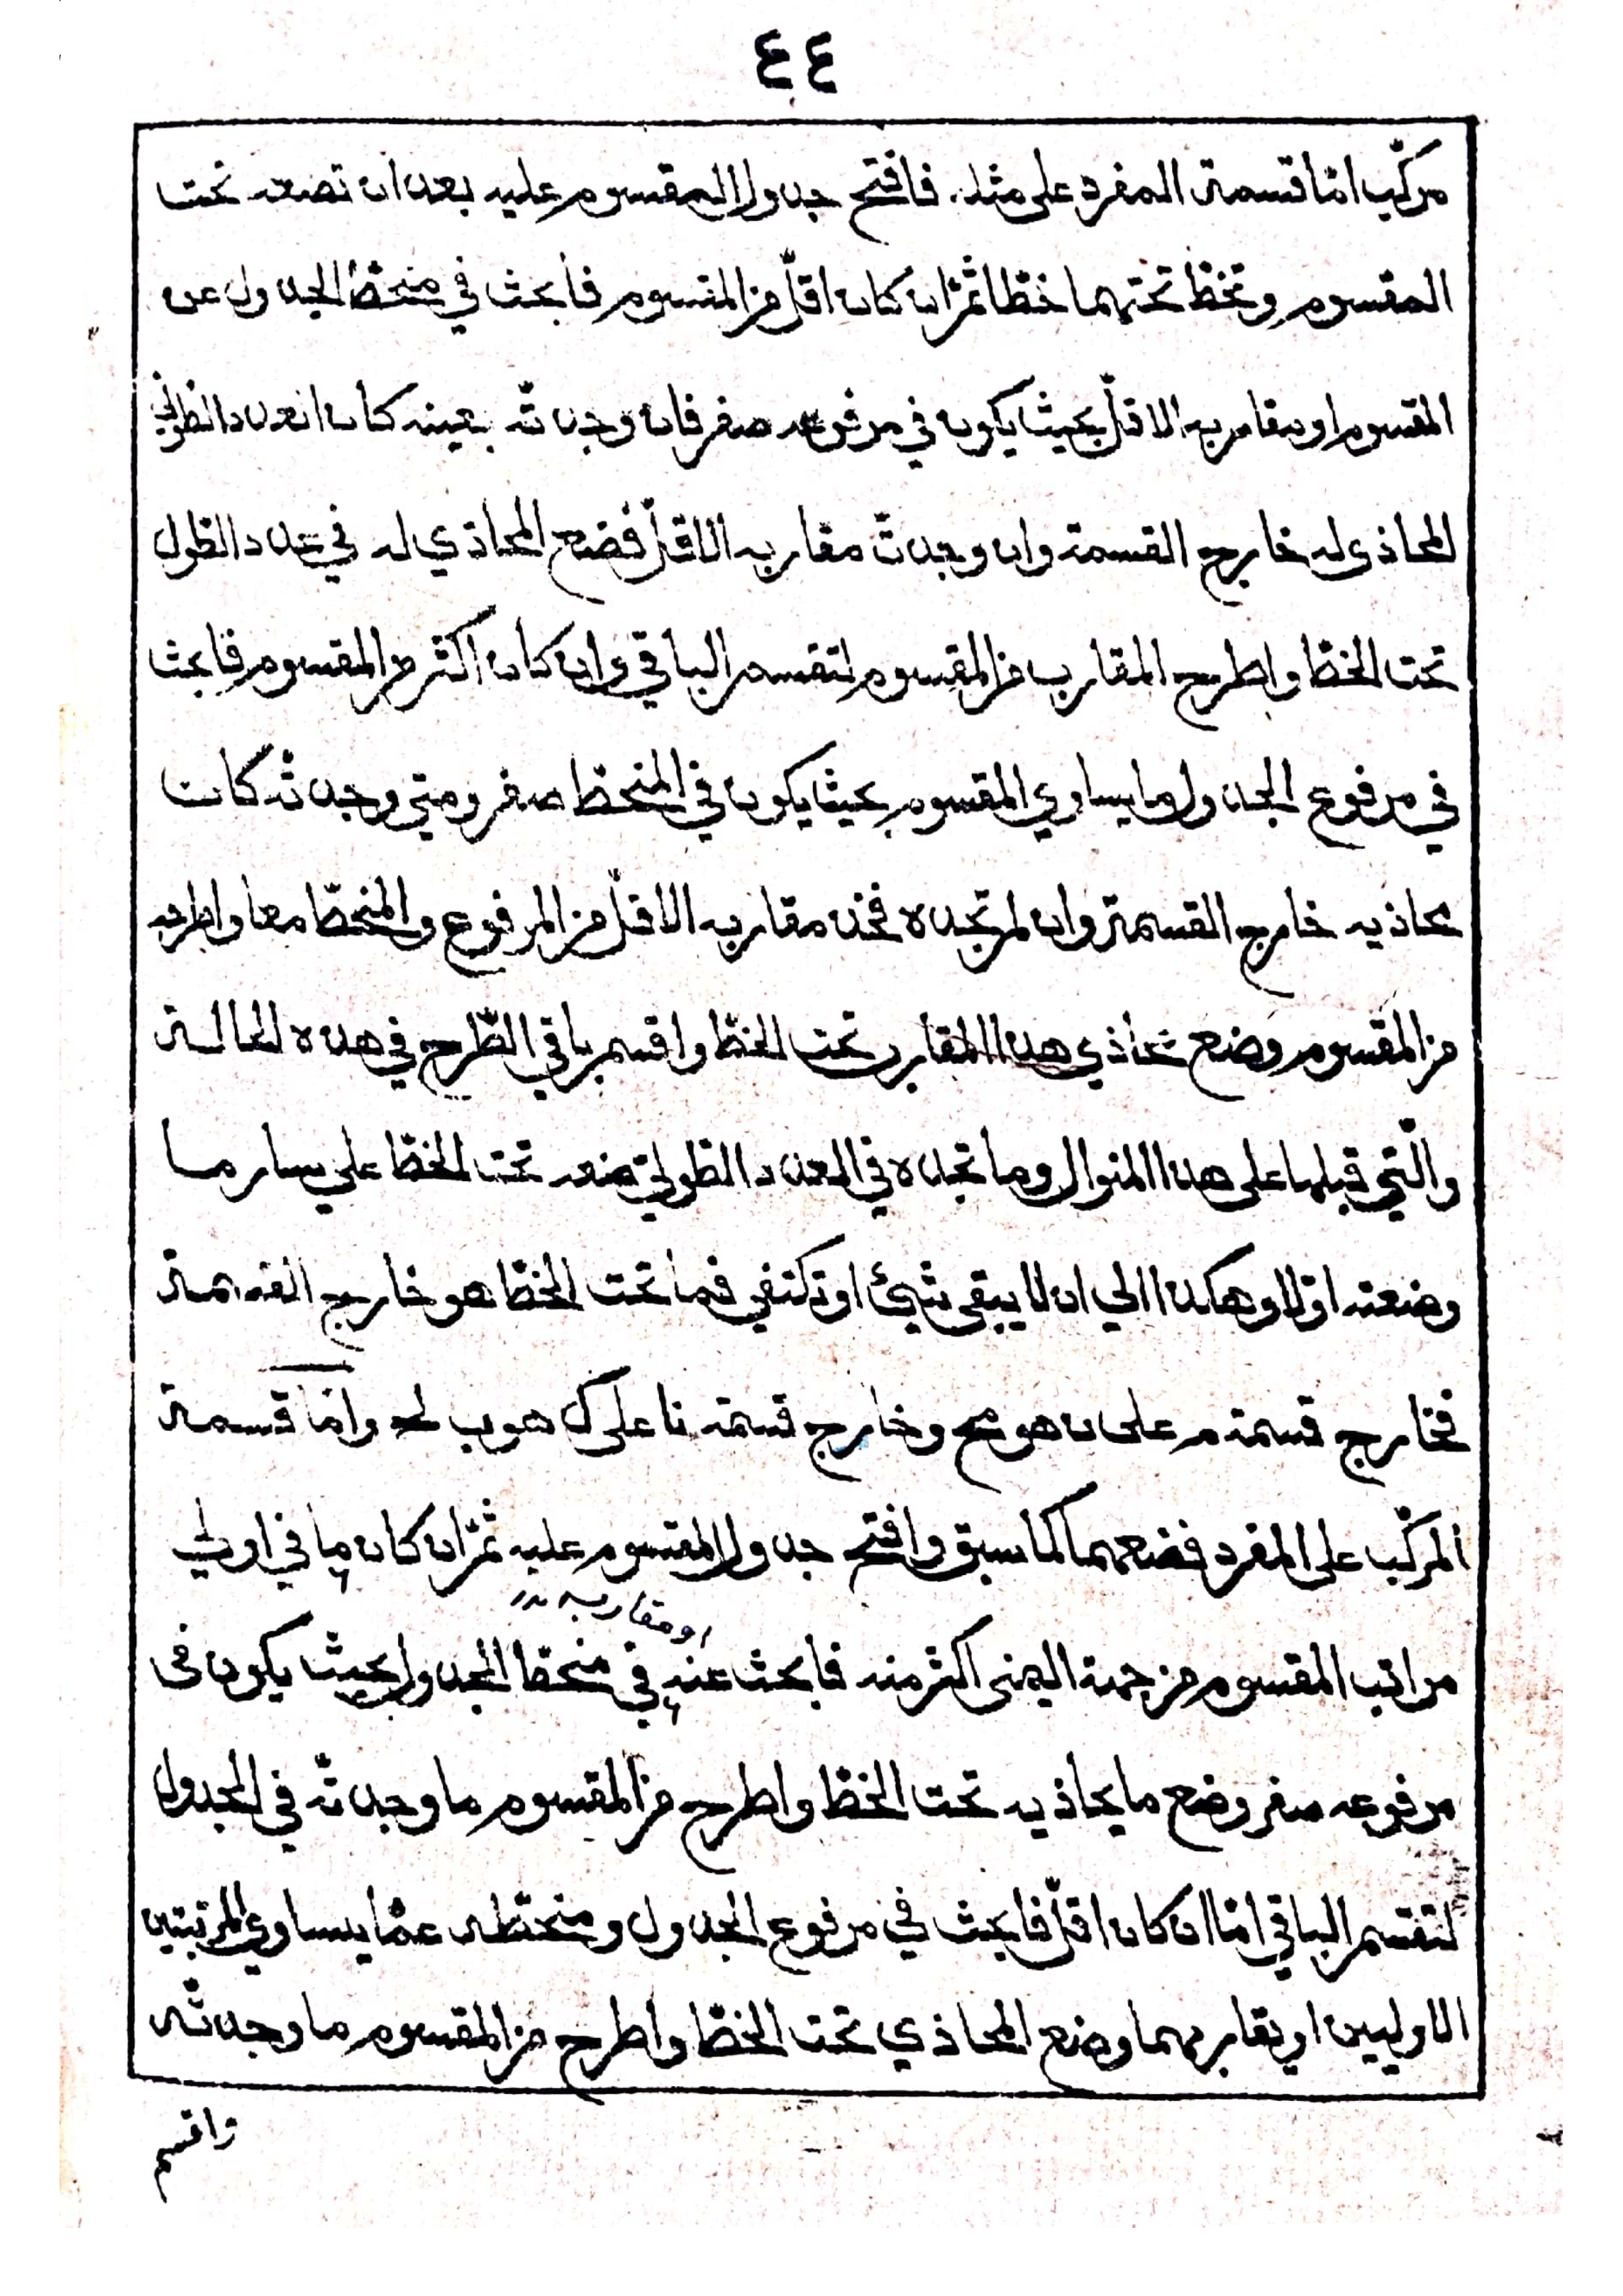 ٤٤
مركّب امّا قسمة المفرد على مثله فافتح جدول المقسوم عليه بعد ان تضعه تحت
المقسوم وتخطّ تحتهما خطّا ثمّ ان كان اقلّ من المقسوم فابحث في منحطّ الجدول عن
المقسوم او مقاربه الاقلّ بحيث يكون في مرفوعه صفر فان وجدته بعينه كان العدد الطولي
المحاذى له خارج القسمة وان وجدت مقاربه الاقلّ فضع المحاذي له في عدد الطول
تحت الخطّ واطرح المقارب من المقسوم لتقسم الباقي وان كان اكثر من المقسوم فابحث
في مرفوع الجدول ما يساوي المقسوم بحيث يكون في المنحطّ صفر ومتى وجدته كانت
محاذيه خارج القسمة وان لم تجده فخذ مقاربه الاقلّ من المرفوع والمنحطّ معا واطرحه
من المقسوم وضع محاذي هذا المقارب تحت الخطّ واقسم باقي الطّرح في هذه الحالة
والّتي قبلها على هذا المنوال وما تجده في العدد الطولي تضعه تحت الخطّ على يسار ما
وضعته اوّلا وهكذا الي ان لا يبقى شيئ او تكتفي فما تحت الخطّ هو خارج القسمة
فخارج قسمة م على ن هو مح وخارج قسمة نا على ك هو ب لح وامّا قسمة
المركّب على المفرد فضعهما كما سبق وافتح جدول المقسوم عليه ثمّ ان كان ما في اولي
او مقاربه
مراتب المقسوم من جهة اليمنى اكثر منه فابحث عنه في منحطّ الجدول بحيث يكون فى
مرفوعه صفر وضع ما يحاذيه تحت الخطّ واطرح من المقسوم ما وجدته في الجدول
لتقسم الباقي امّا ان كان اقلّ فابحث في مرفوع الجدول ومنحطّه عمّا يساوي المرتبتين
الاوليين او يقاربهما وضع المحاذي تحت الخطّ واطرح من المقسوم ما وجدته
ثم اقسم